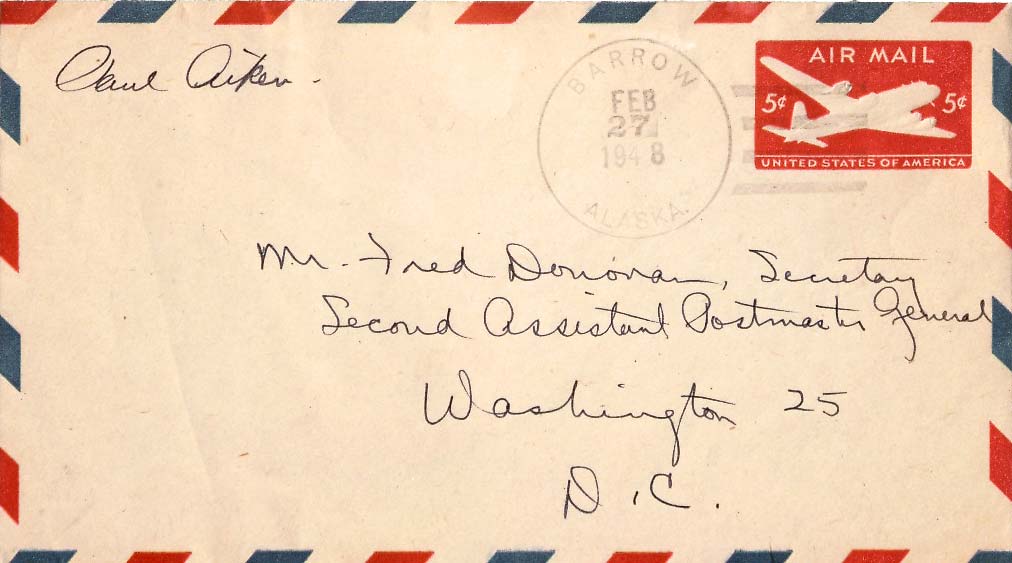 Paul Aiken
BARROW
FEB
27
1948
ALASKA.
AIR MAIL
5¢ 5¢
UNITED STATES OF AMERICA
Mr. Fred Donovan, Secretary
Second Assistant Postmaster General
Washington 25
D.C.